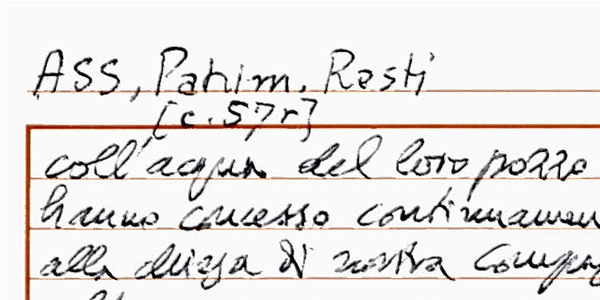 ASS, Patrim. Resti
[c. 57r]
coll'acqua del loro pozzo
hanno concesso continuamen
alla chiesa di nostra Compag